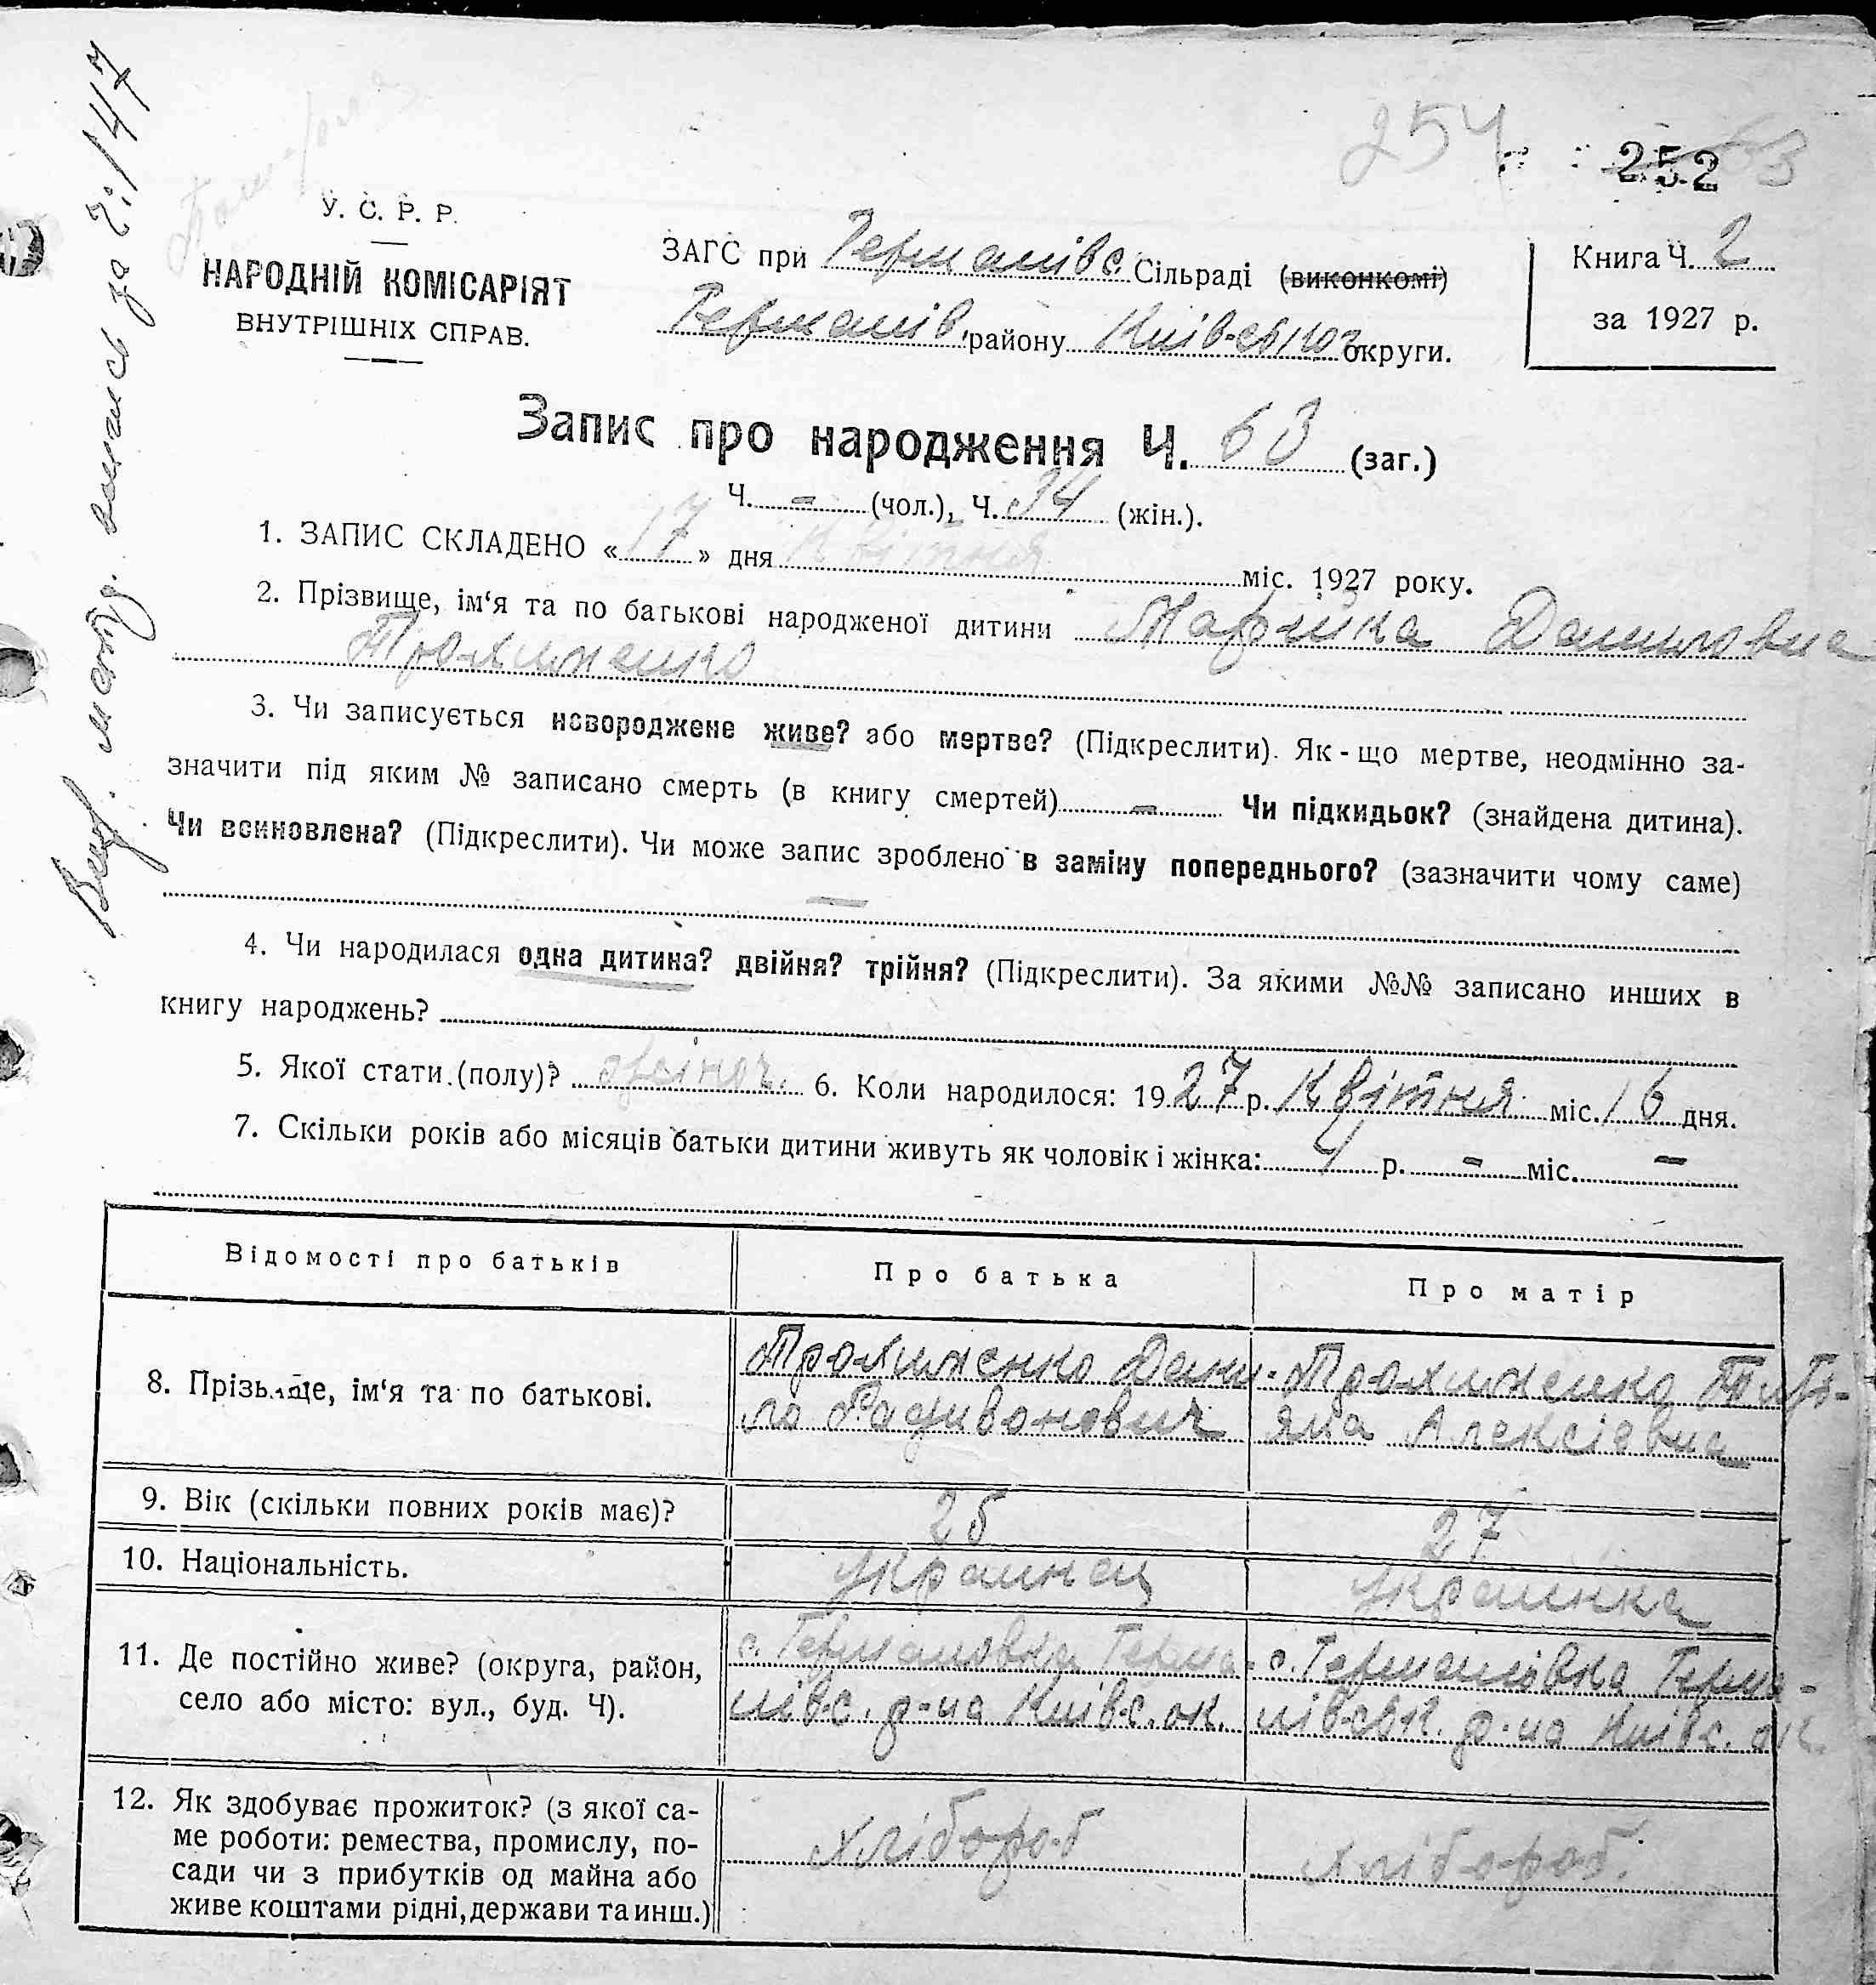 254
252
У. С. Р. Р.
НАРОДНІЙ КОМІСАРІЯТ
ВНУТРІШНІХ СПРАВ.
ЗАГС при Германівс. Сільраді (виконкомі)
Германів. району Київської округи.
Книга Ч. 2
за 1927 р.
Запис про народження Ч. 63 (заг.)
Ч. - (чол.), Ч. 34 (жін.).
1. ЗАПИС СКЛАДЕНО «17» дня Квітня міс. 1927 року.
2. Прізвище, ім‘я та по батькові народженої дитини Марійка Даниловна
Трохименко
3. Чи записується новороджене живе? або мертве? (Підкреслити). Як-що мертве, неодмінно за-
значити під яким № записано смерть (в книгу смертей) - Чи підкидьок? (знайдена дитина).
Чи всиновлена? (Підкреслити). Чи може запис зроблено в заміну попереднього? (зазначити чому саме)
—
4. Чи народилася одна дитина? двійня? трійня? (Підкреслити). За якими №№ записано инших в
книгу народжень?
5. Якої стати (полу)? жіноч. 6. Коли народилося: 1927 р. Квітня міс. 16 дня.
7. Скільки років або місяців батьки дитини живуть як чоловік і жінка: 4 р. - міс. -
Відомості про батьків
Про батька
Про матір
8. Прізвище, ім‘я та по батькові.
Трохименко Дани-
ло Радивонович
Трохименко Тать-
яна Алексієвна
9. Вік (скільки повних років має)?
25
27
10. Національність.
Украинец
Украинка
11. Де постійно живе? (округа, район,
село або місто: вул., буд. Ч).
с. Германовка Герма-
нівс. р-на Київс. ок.
с. Германовка Герма-
нівськ. р-на Київс. ок.
12. Як здобуває прожиток? (з якої са-
ме роботи: ремества, промислу, по-
сади чи з прибутків од майна або
живе коштами рідні, держави та инш.)
хлібороб
хлібороб.
за Ч: 147